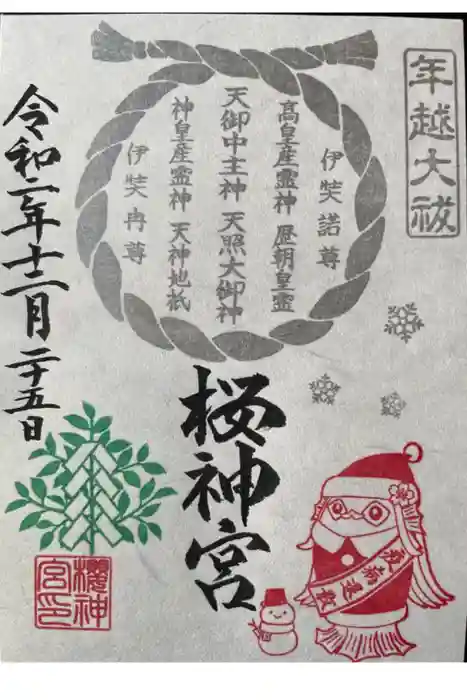 年越大祓
伊弉諾尊
高皇産霊神 歴朝皇霊
天御中主神 天照大御神
神皇産霊神 天神地祇
伊弉冉尊
桜神宮
令和二年十二月二十五日
櫻神宮印